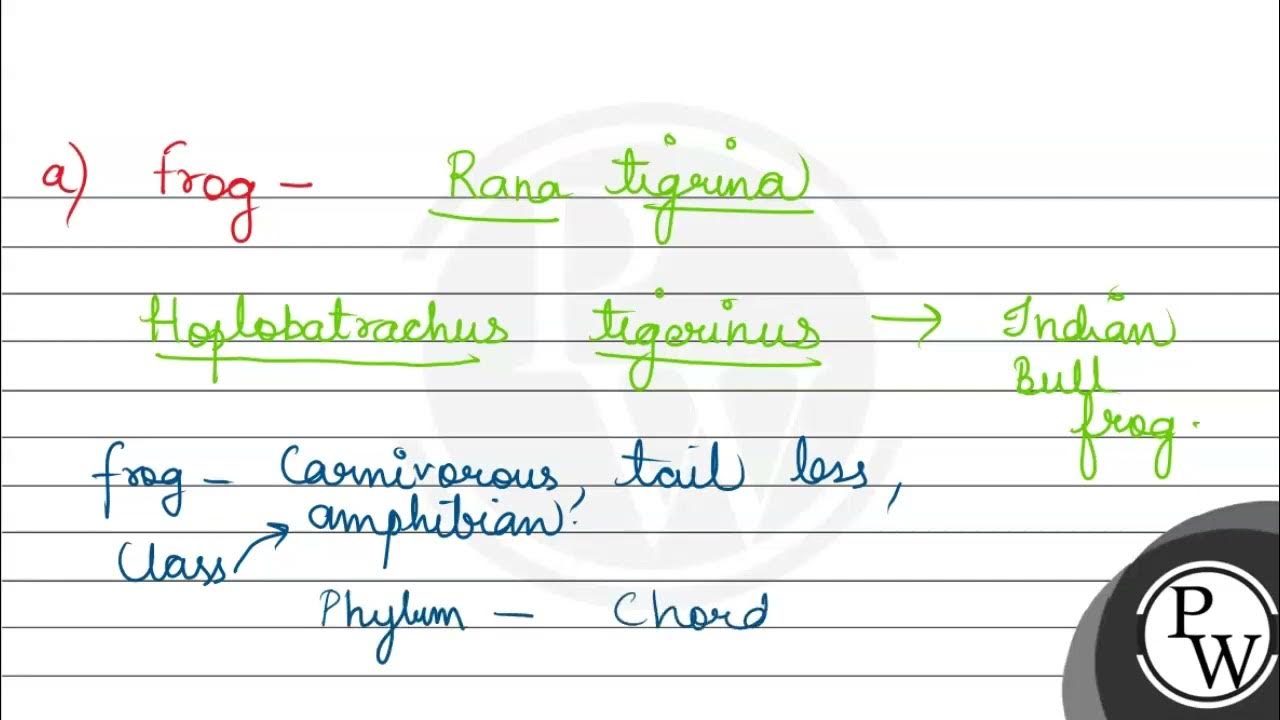 a) frog - Rana tigrina
Hoplobatrachus tigerinus → Indian
Bull
frog.
frog - Carnivorous, tail less,
amphibian.
Class
Phylum - Chord
PW
PW